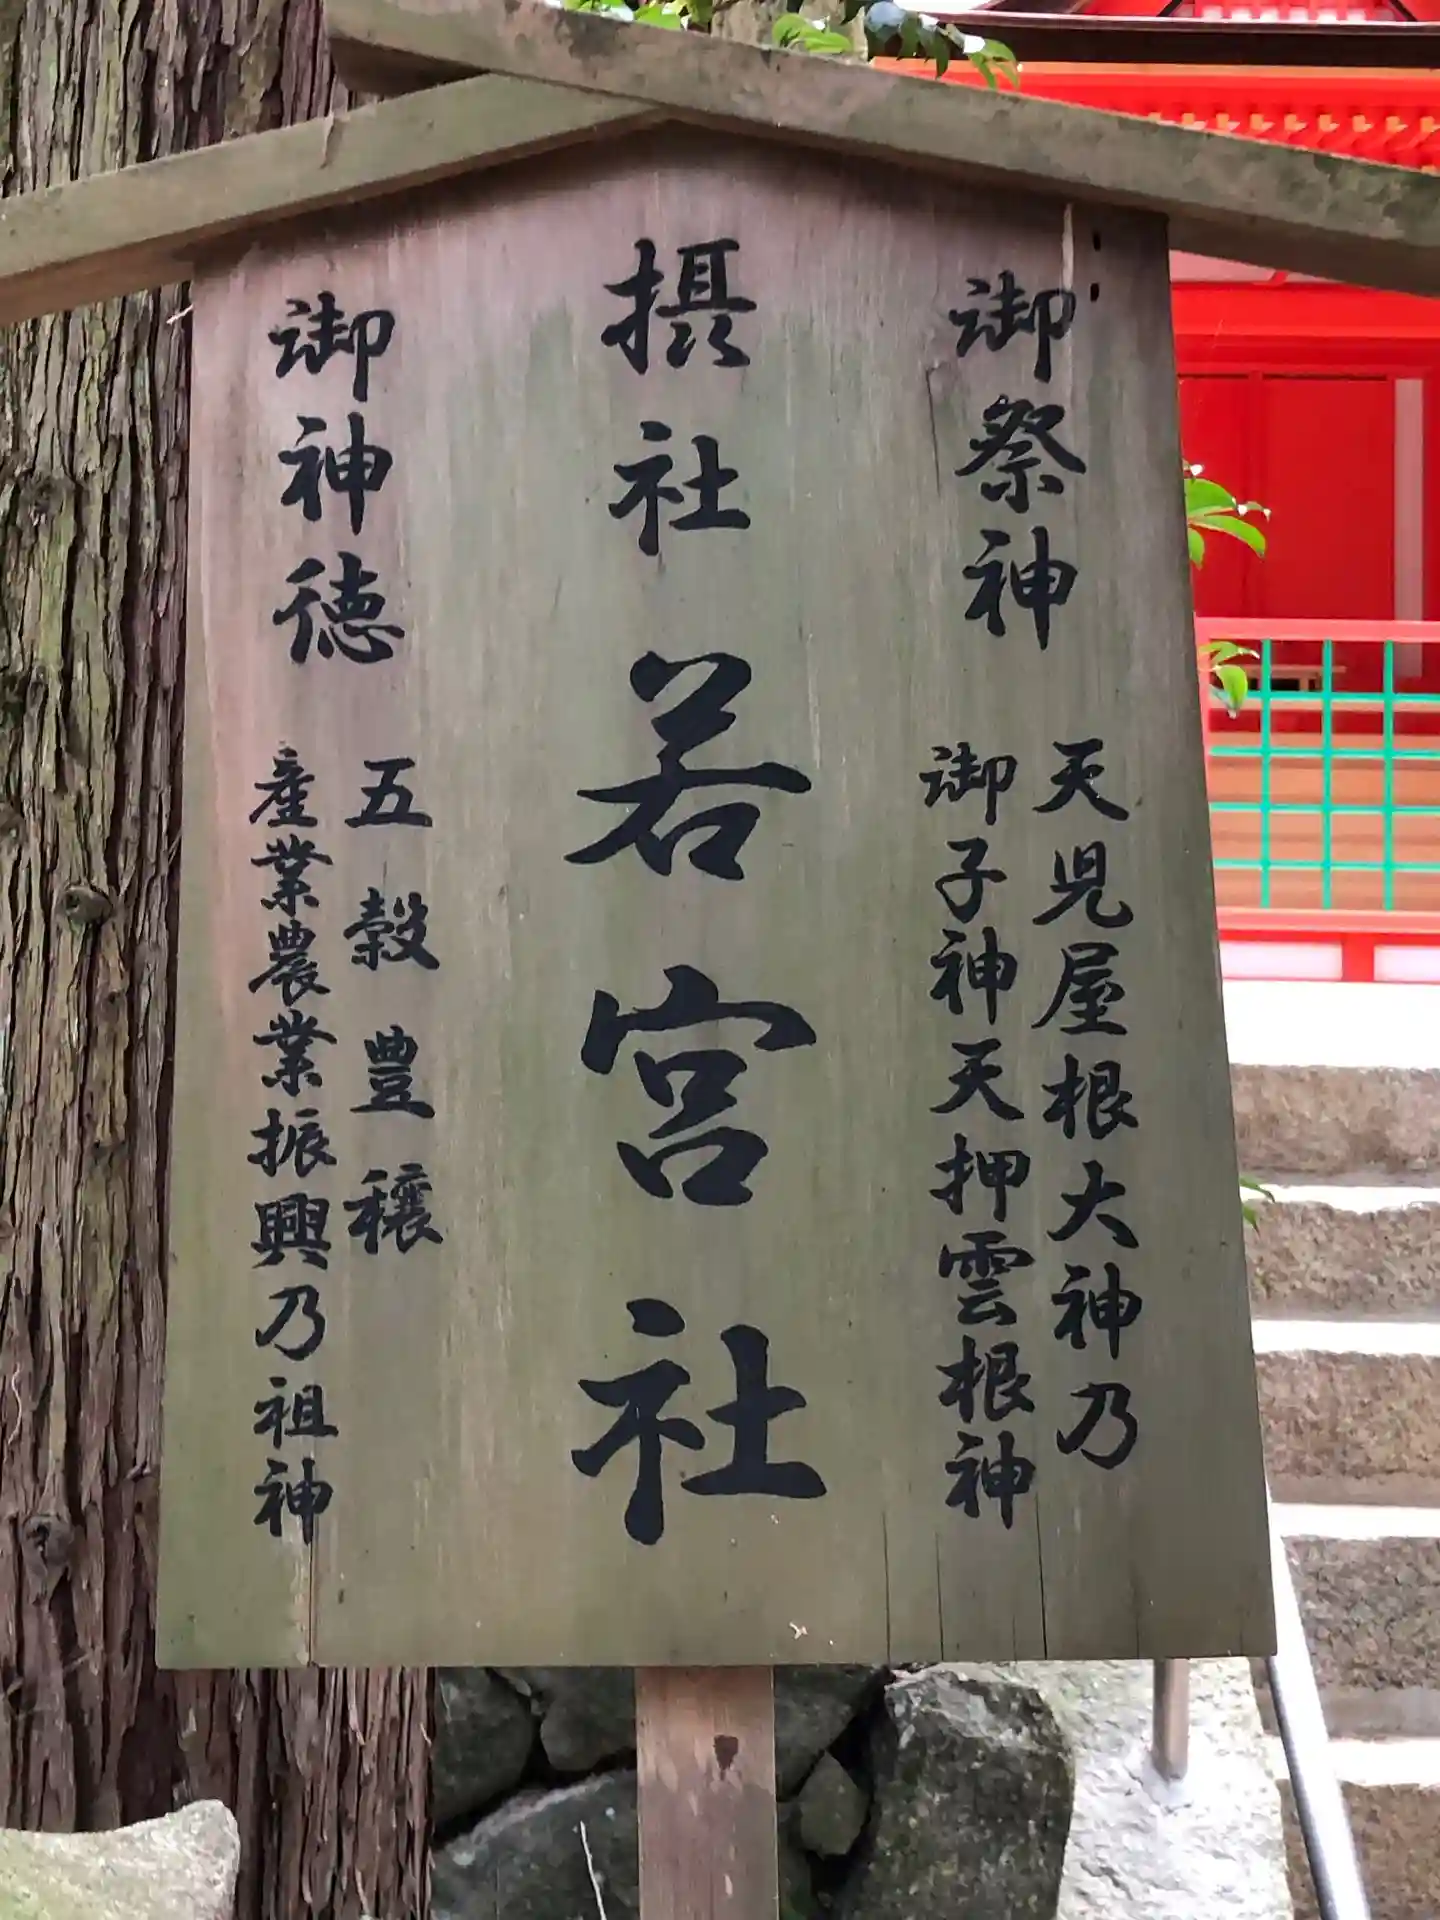 御祭神
天児屋根大神乃
御子神天押雲根神
摂社若宮社
御神徳
五穀豊穣
産業農業振興乃祖神